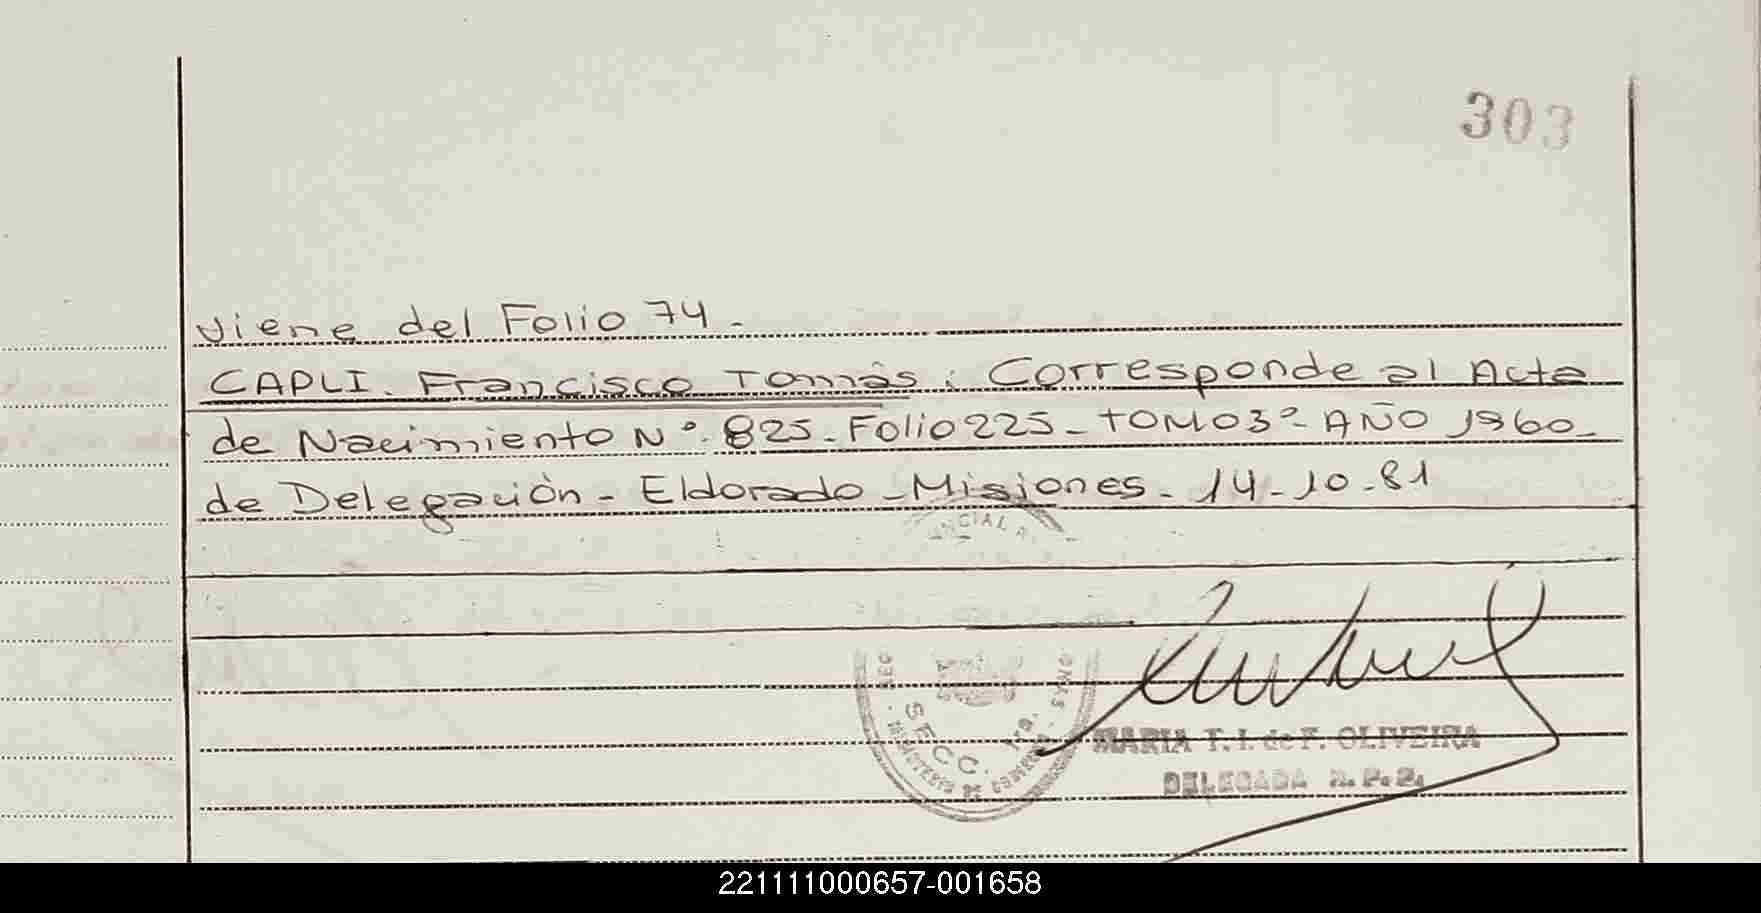 303
viene del Folio 74.
CAPLI. Francisco Tomás: Corresponde al Acta
de Nacimiento Nº. 825. Folio 225 - TOMO 3º - AÑO 1960.
de Delegación - Eldorado - Misiones. 14-10-81
NCIAL
SECC.
MINISTERIO DE GOBIERNO
MARIA T. I. de F. OLIVEIRA
DELEGADA R. P. P.
221111000657-001658